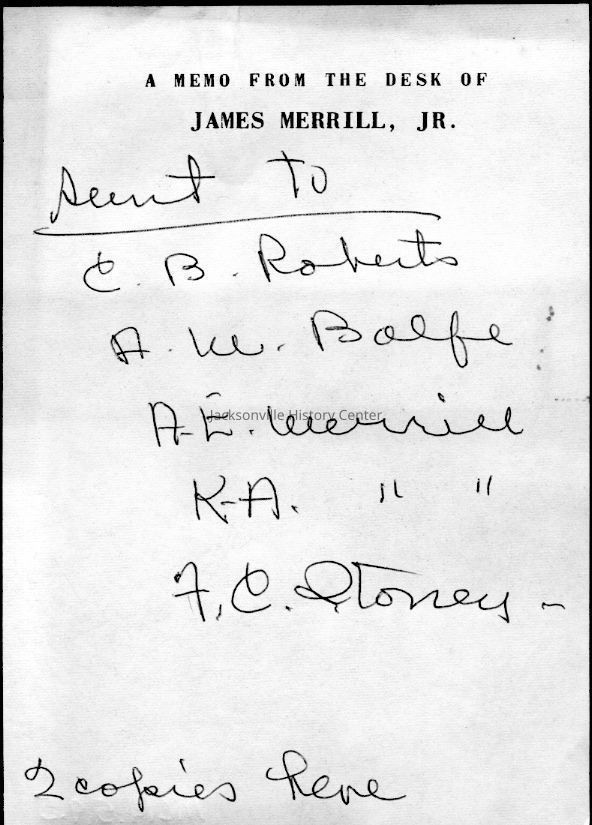 A MEMO FROM THE DESK OF
JAMES MERRILL, JR.
Sent To
C. B. Roberts
A. W. Bolfe
Jacksonville History Center
A. E. Merrill
K. A. " "
F. C. Storey -
2 copies here